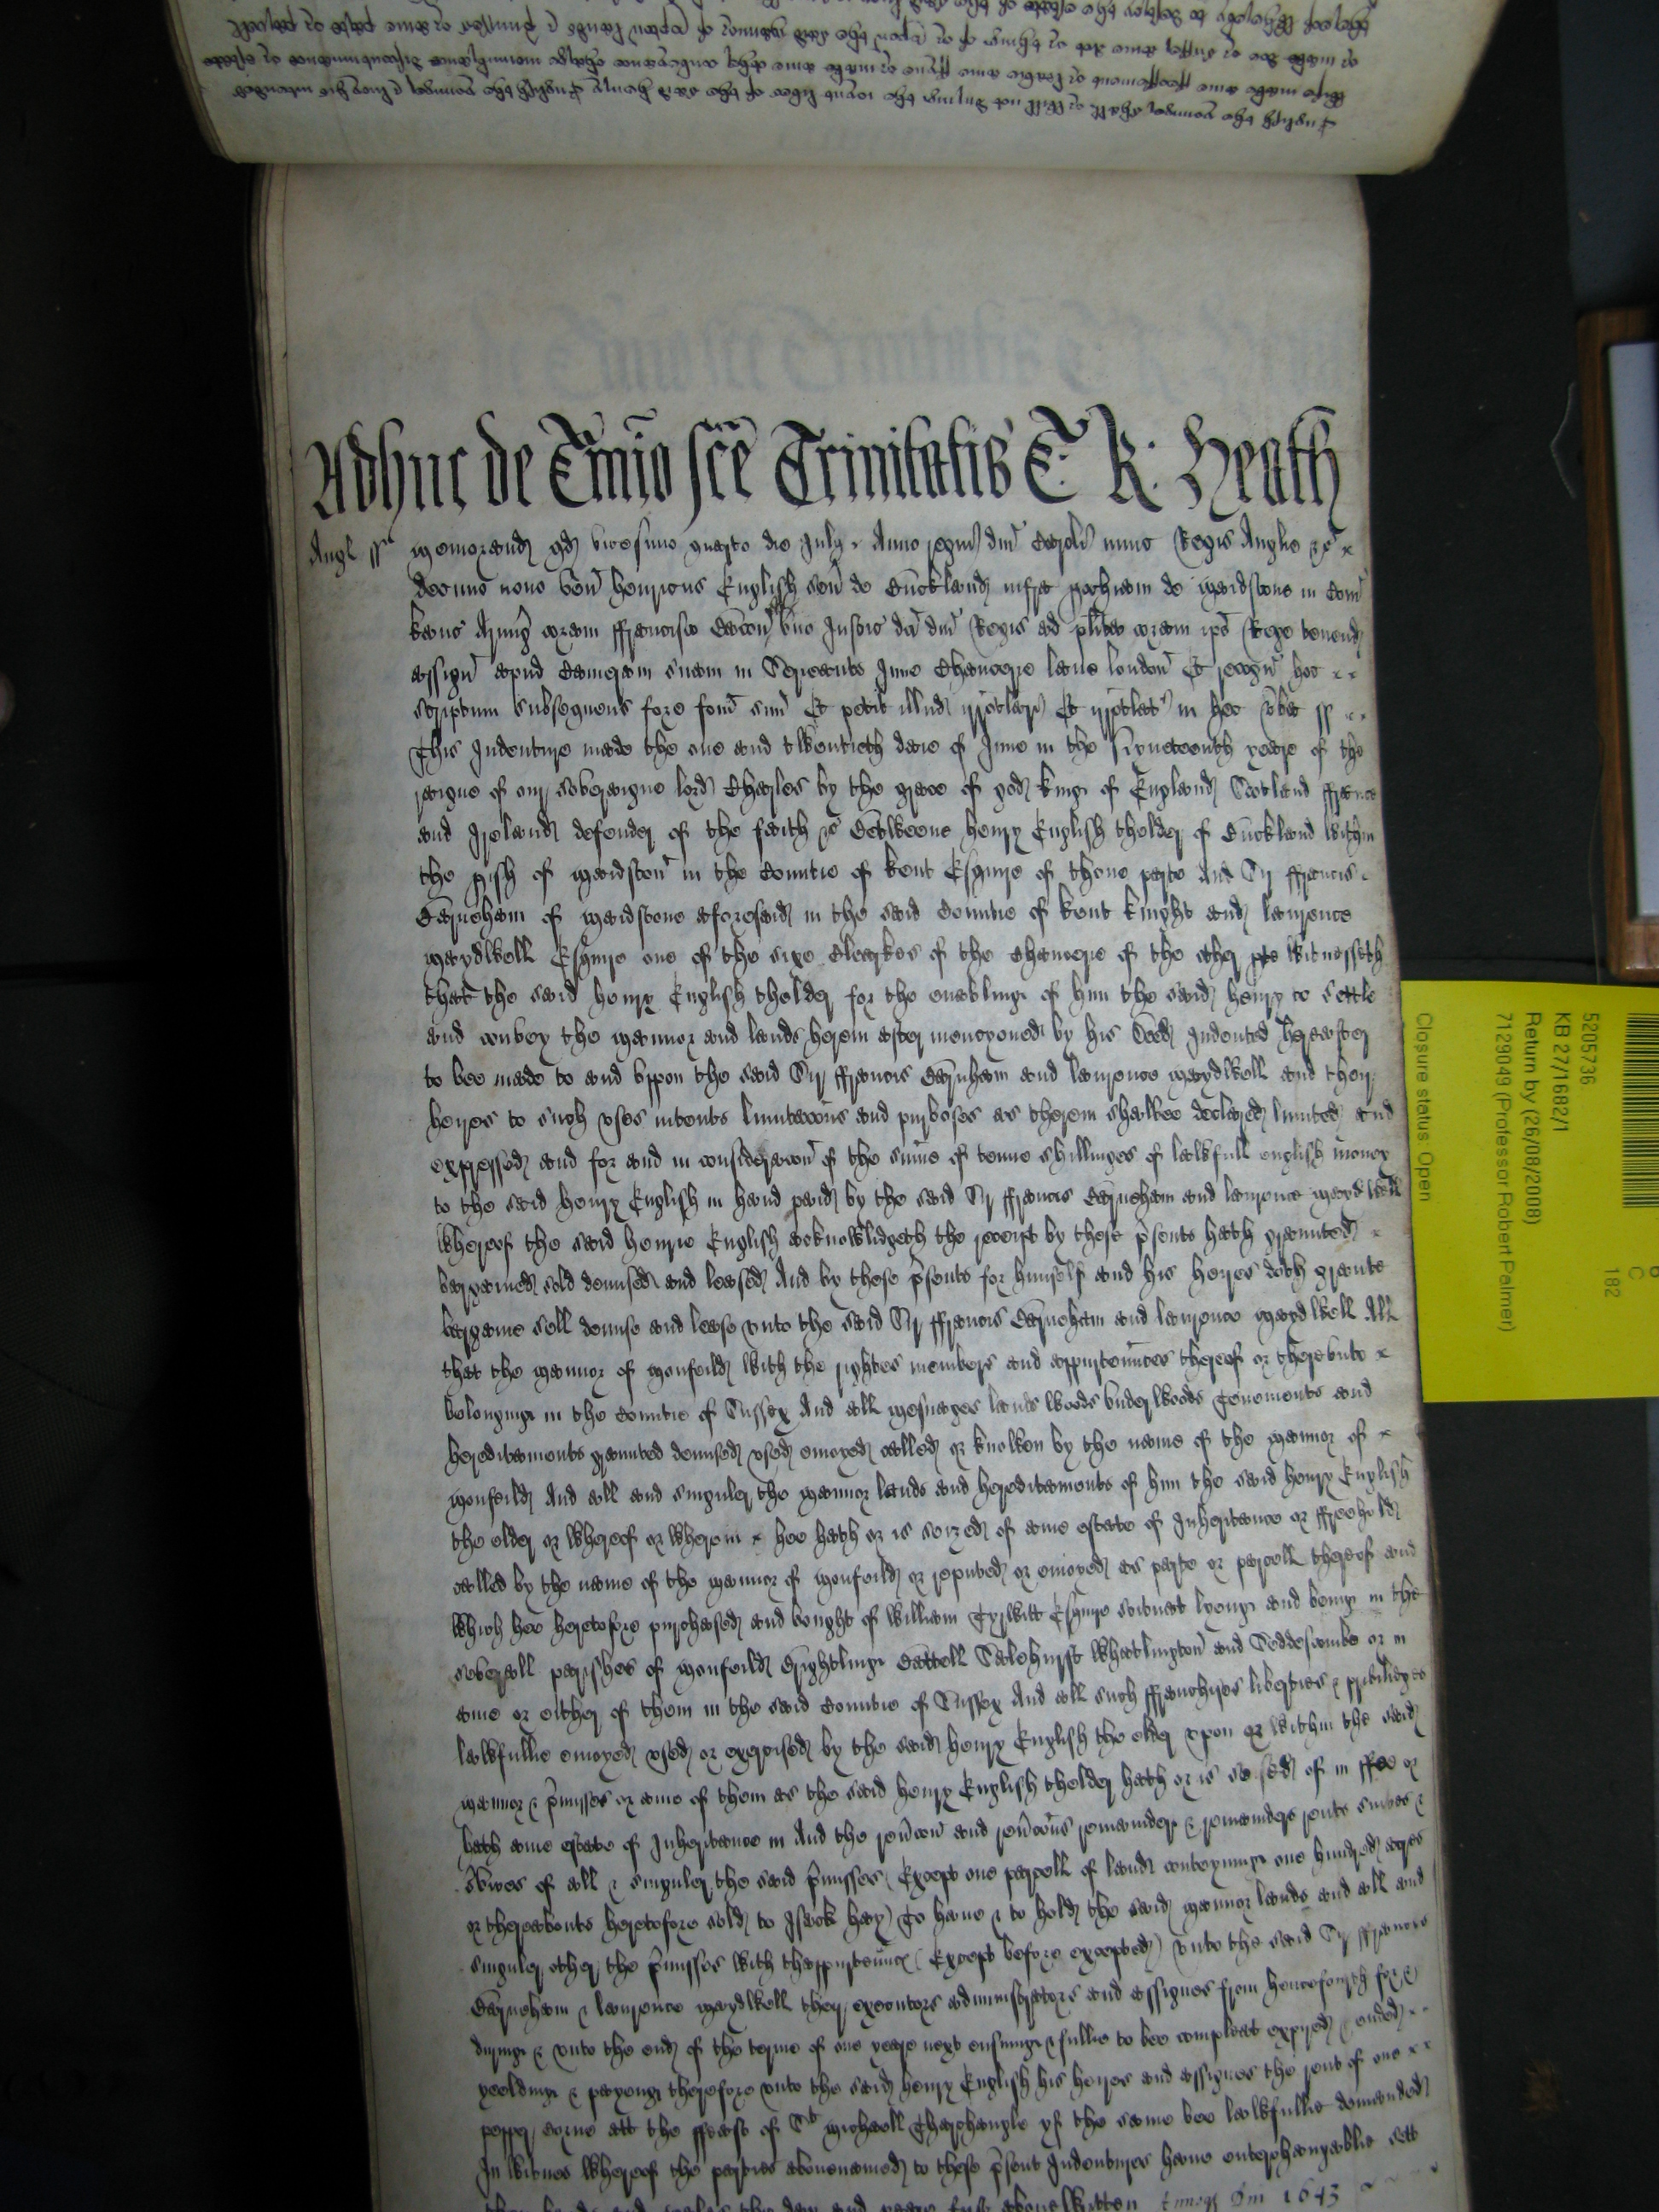 Adhuc de Tmio sce Trinitatis T. R: Heath
Angl ss Memorand qd vicesimo quarto die July Anno regni dni Caroli nunc Regis Anglie &c
decimo nono ven Henricus English sen de Buckland infra pochiam de Maidstone in Com
Kanc Armig coram Francisco Bacon uno Justic dci dni Regis ad plita coram ipo Rege tenend
assign apud Cameram suam in Serjeants Inne Chancerie lane london Et recogn hoc
scriptum subsequens fore fcm suu Et petit illud irrotlari Et irrotlat in hec vba ss
This Indenture made the one and twentieth daie of June in the Nyneteenth yeare of the
raigne of our soveraigne lord Charles by the grace of god King of England Scotland ffrance
and Ireland defender of the faith &c Betweene Henry English thelder of Buckland within
the pish of Maidston in the Countie of Kent Esquire of thone parte And Sir ffrancis
Barneham of Maidstone aforesaid in the said Countie of Kent Knight and laurence
Maydwell Esquire one of the sixe Clearkes of the Chancerie of the other pte Witnesseth
that the said Henry English thelder for the enablinge of him the said Henry to settle
and convey the Mannor and lands herein after mencyoned by his Deed Indented hereafter
to bee made to and uppon the said Sir ffrancis Barnham and laurence Maydwell and their
heires to such uses intents limitacons and purposes as therein shalbee declared limited and
expressed and for and in consideracon of the sume of tenne shillinges of lawfull english money
to the said Henry English in hand paid by the said Sir ffrancis Barneham and laurence Maydwell
Whereof the said Henrie English acknowlidgeth the receipt by these psents hath graunted
bargained sold demised and leased And by these psents for himself and his heires doth graunte
bargaine sell demise and lease unto the said Sir ffrancis Barneham and laurence Maydwell All
that the Mannor of Monfeild with the rightes members and appurtenances thereof or thereunto
belonginge in the Countie of Sussex And all Mesuages lands Woods underwoods Tenements and
hereditaments graunted demised used enioyed called or knowen by the name of the Mannor of
Monfeild And all and singuler the Mannor lands and hereditaments of him the said Henry English
the elder or Whereof or Wherein hee hath or is seized of anie estate of Inheritance or ffreehold
called by the name of the Mannor of Monfeild or reputed or enioyed as parte or parcell thereof and
Which hee heretofore purchased and bought of William Tyrwitt Esquire scituat lyenge and beinge in the
severall parishes of Monfeild Brightlinge Battell Salehurst Whatlington and Seddescambe or in
anie or either of them in the said Countie of Sussex And all such ffranchises liberties & priviliges
lawfullie enioyed used or exercised by the said Henry English the elder upon or within the said
Mannor & pmisses or anie of them as the said Henry English thelder hath or is seised of in ffee or
hath anie estate of Inheritance in And the revcon and revcons remainder & remainders rents suites &
svices of all & singuler the said pmisses (Except one parcell of land conteyninge one hundred acres
or thereabouts heretofore sold to Isack Hay) To have & to hold the said Mannor lands and all and
singuler other the pmisses with thappurtenncs (Except before excepted) unto the said Sir ffrancis
Barneham & laurence Maydwell their executors administrators and assignes from henceforth for &
duringe & unto the end of the terme of one yeare next ensuinge & fullie to bee compleat expired & ended
yeeldinge & payenge therefore unto the said Henry English his heires and assignes the rent of one
pepper corne att the ffeast of St Michaell Tharchangle yf the same bee lawfullie demanded
In Witnes Whereof the parties abovenamed to these psent Indentures have enterchangablie sett
their hands and seales the day and yeare first above Written Annoq Dni 1643
5205736
KB 27/1682/1
Return by (26/08/2008)
7129049 (Professor Robert Palmer)
Closure status: Open
C
182